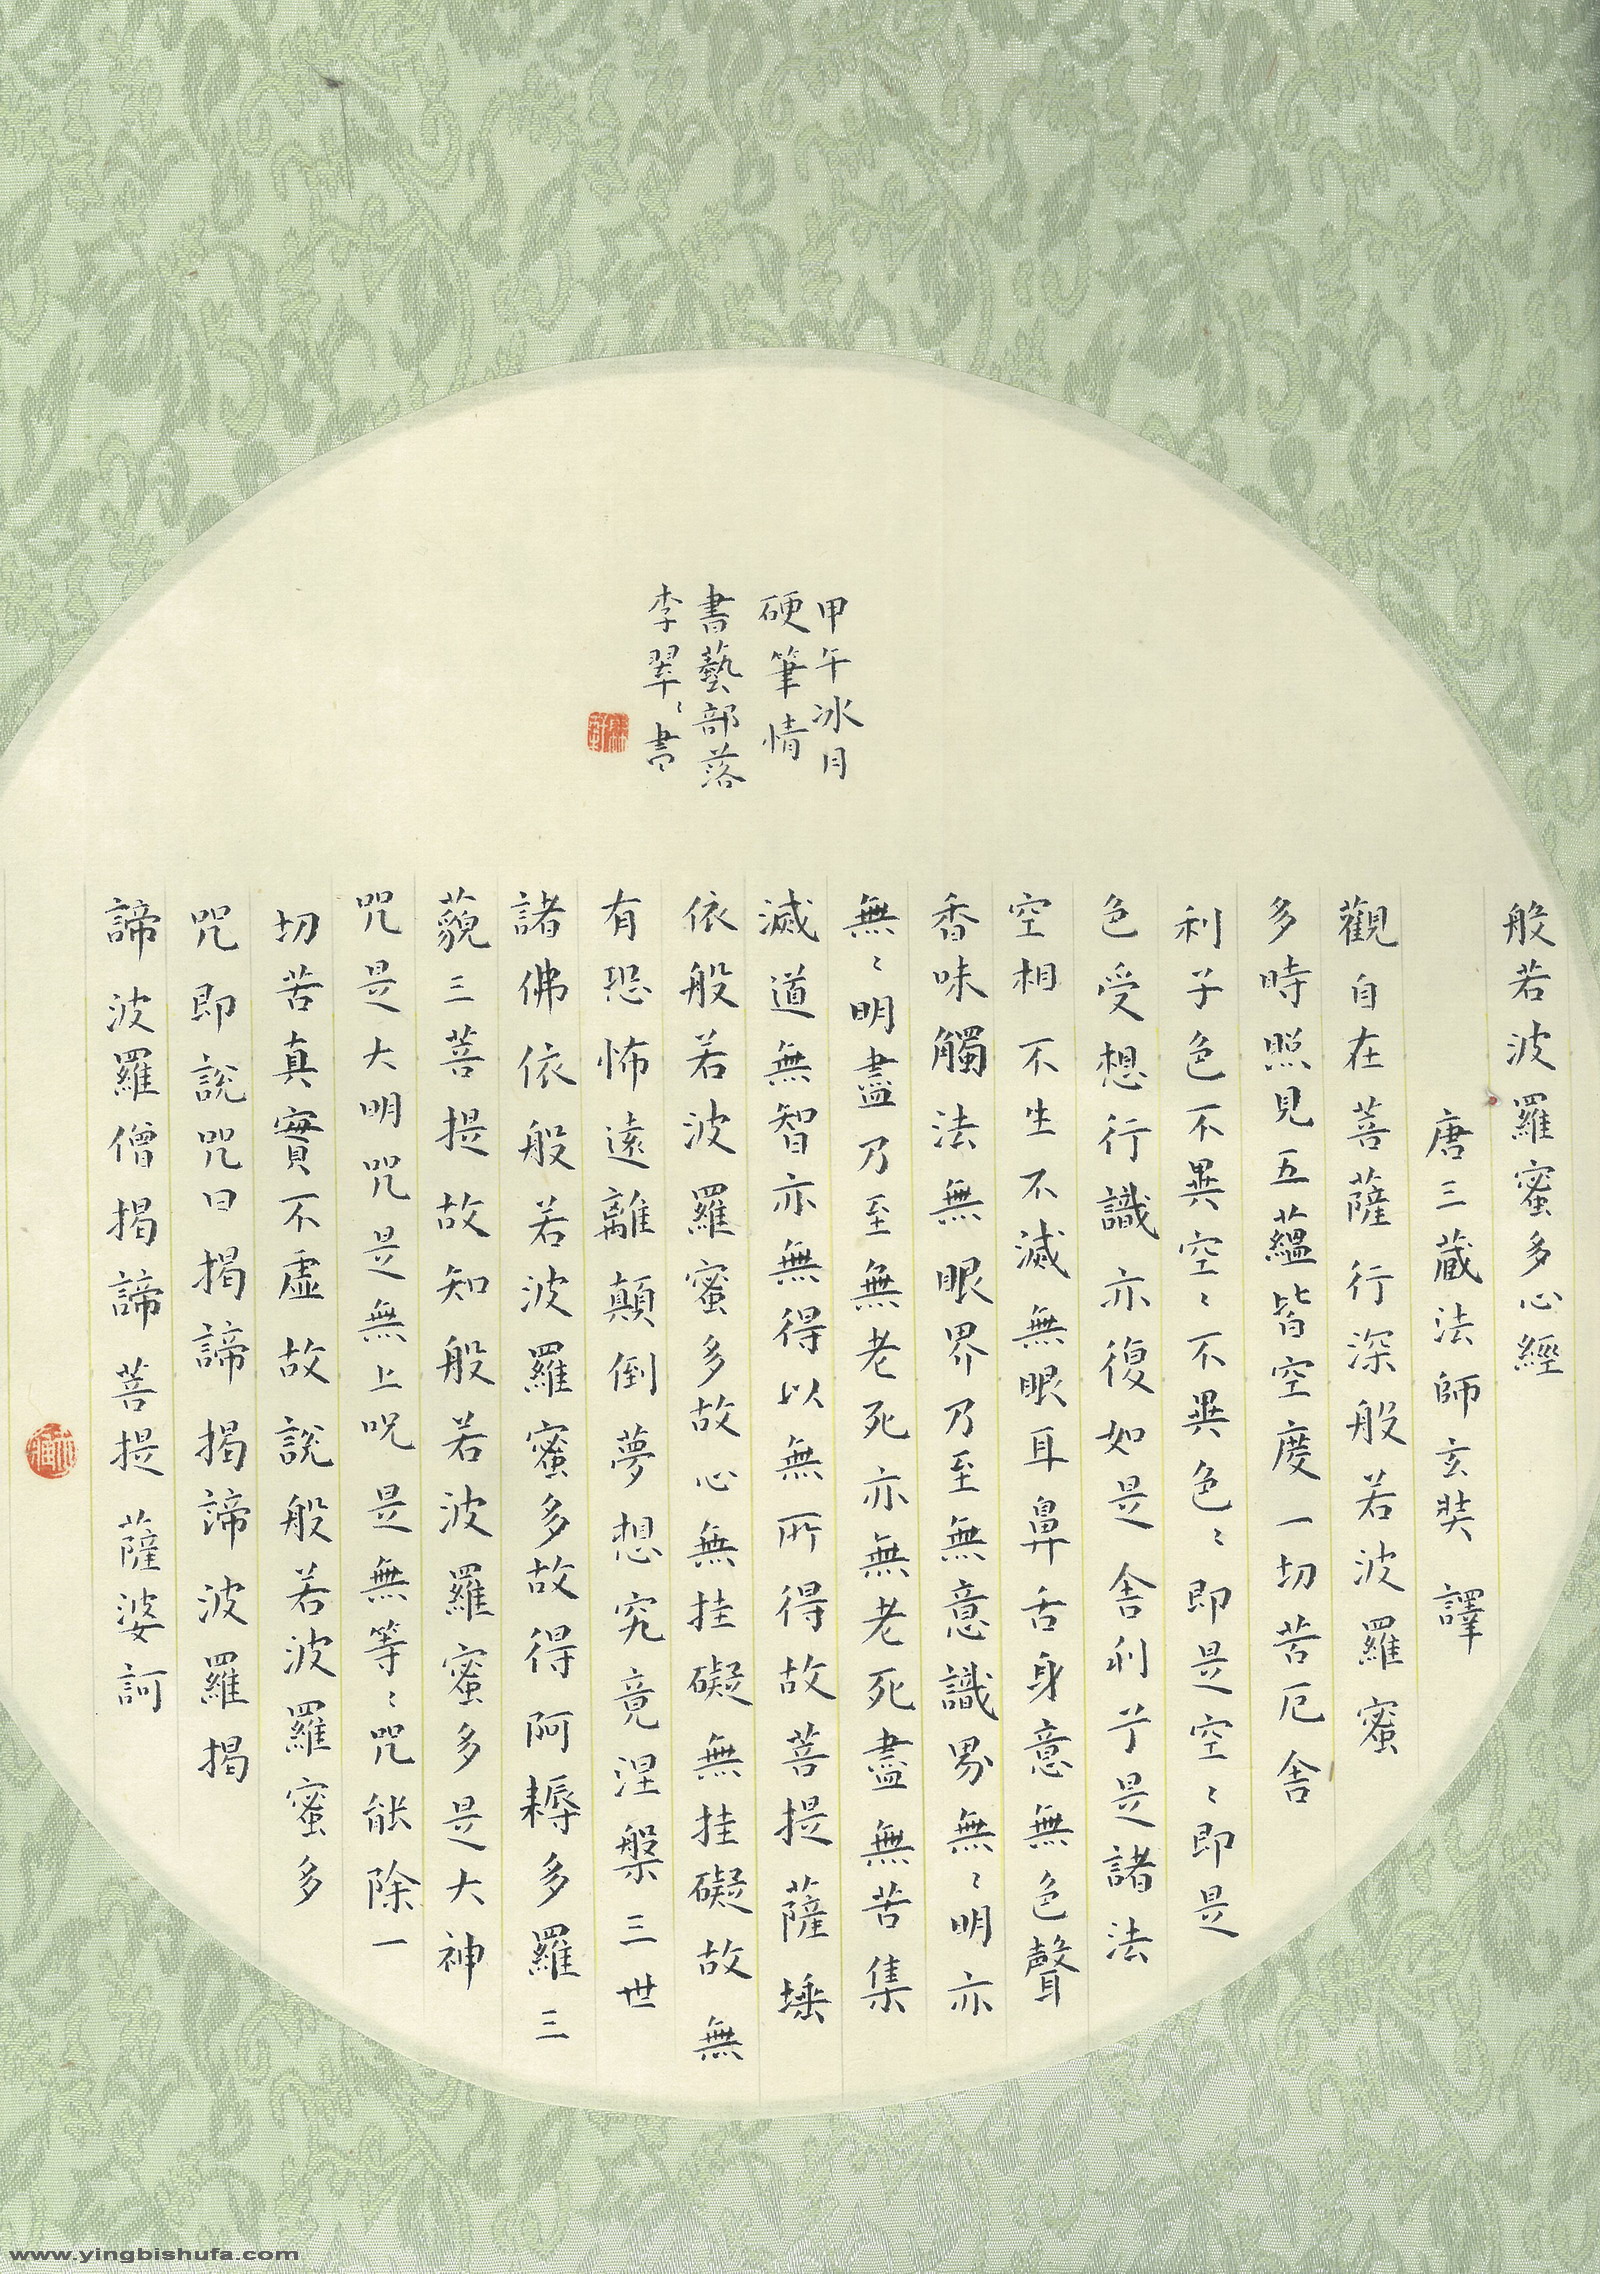 般若波羅蜜多心經
唐三藏法師玄奘譯
觀自在菩薩行深般若波羅蜜
多時照見五蘊皆空度一切苦厄舍
利子色不異空〻不異色〻即是空〻即是
色受想行識亦復如是舍利子是諸法
空相不生不滅無眼耳鼻舌身意無色聲
香味觸法無眼界乃至無意識界無〻明亦
無〻明盡乃至無老死亦無老死盡無苦集
滅道無智亦無得以無所得故菩提薩埵
依般若波羅蜜多故心無挂礙無挂礙故無
有恐怖遠離顛倒夢想究竟涅槃三世
諸佛依般若波羅蜜多故得阿耨多羅三
藐三菩提故知般若波羅蜜多是大神
咒是大明咒是無上咒是無等〻咒能除一
切苦真實不虛故說般若波羅蜜多
咒即說咒曰揭諦揭諦波羅揭
諦波羅僧揭諦菩提薩婆訶
甲午冰月
硬筆情
書藝部落
李翠〻書
www.yingbishufa.com